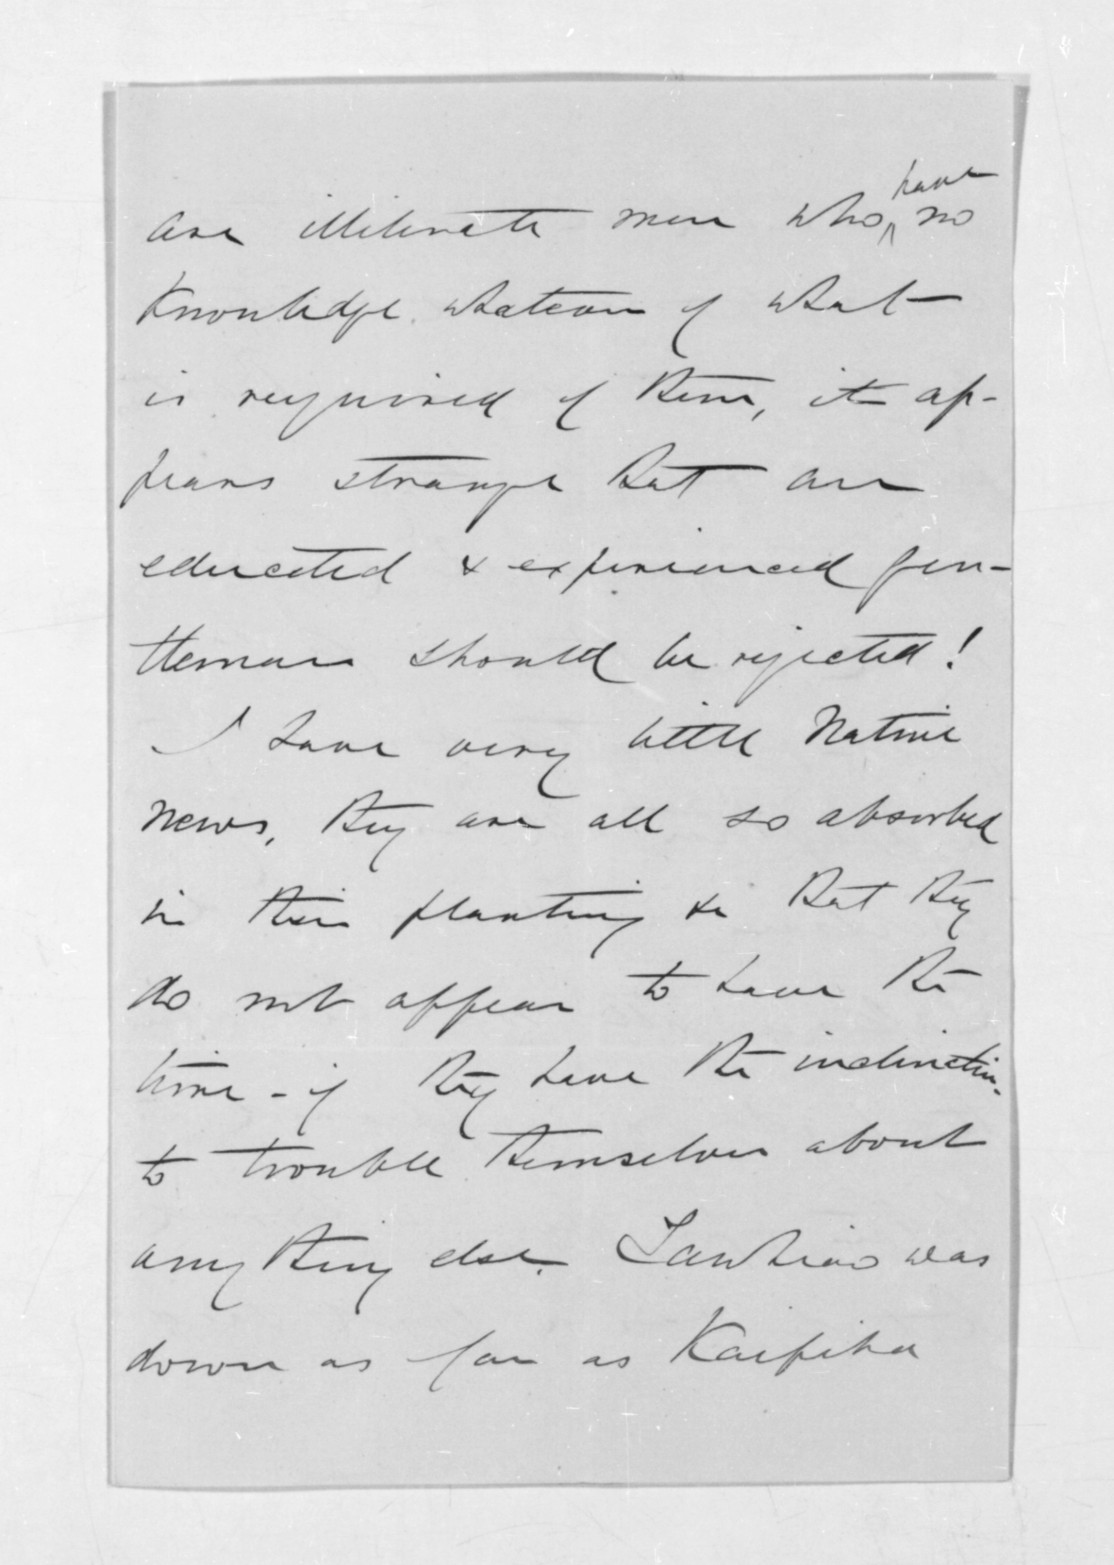 are illiterate men who have no
Knowledge whatever of what
is required of them, it ap-
pears strange that an
educated & experienced gen-
tleman should be rejected!
I have very little Native
news, they are all so absorbed
in their planting &c that they
do not appear to have the
time - if they have the inclination -
to trouble themselves about
any thing else. Tawhiao was
down as far as Kaipiha